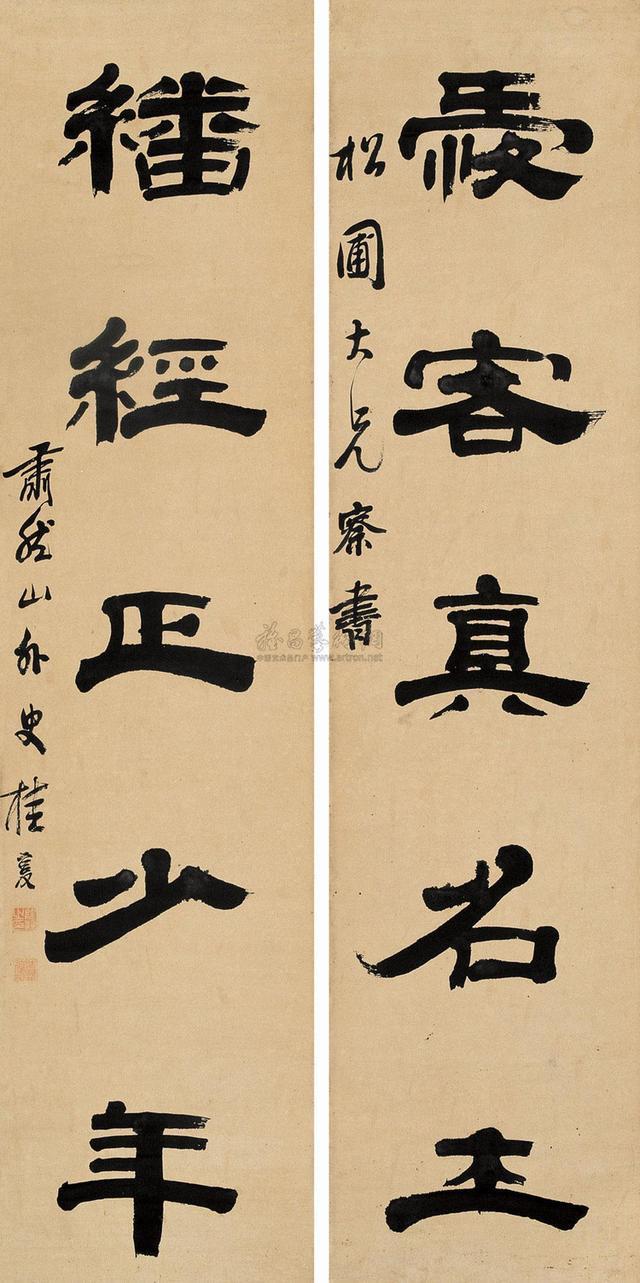 愛客真名士
松圃大兄察書
繙經正少年
肅然山外史桂馥
雅昌藝術網
www.artron.net